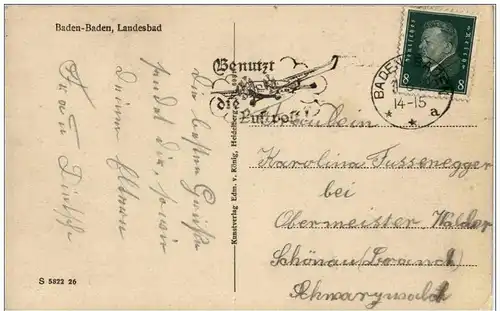 Baden-Baden, Landesbad
Die besten Grüße
sendet dir, sowie
Deinen Eltern
Frau
S 5822 26
Kunstverlag Edm. v. König, Heidelberg
Benutzt
die
Luftpost!
Deutsches Reich
8 8
BADEN-BADEN
14-15
* * a
Fräulein
Karolina Fussenegger
bei
Obermeister Walder
Schönau
Schwarzwald